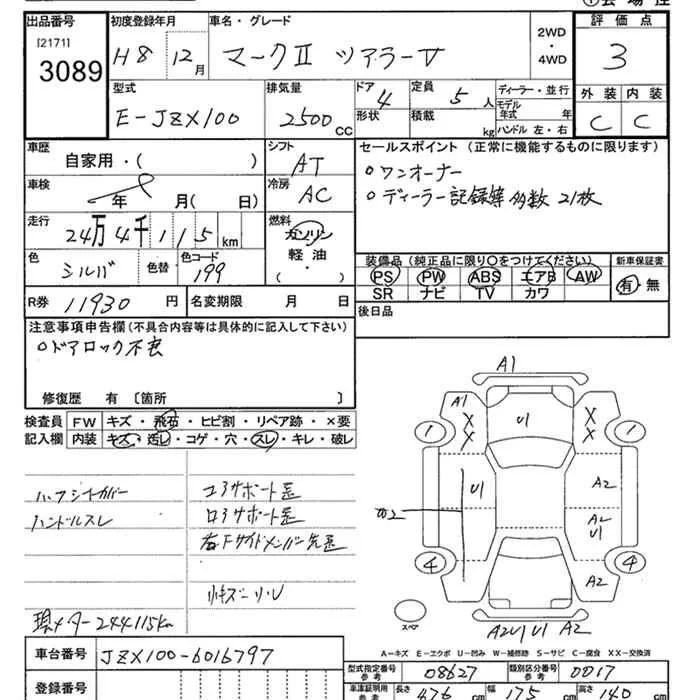 出品番号 初度登録年月 車名・グレード 2WD・4WD 評価点
[2171]
3089 H8 12月 マークⅡ ツアラーV 3
型式 排気量 ドア 定員 ディーラー・並行 外装 内装
E-JZX100 2500cc 4 5人 モデル年式 年 C C
形状 積載 kg ハンドル 左・右
車歴 シフト セールスポイント (正常に機能するものに限ります)
自家用・( ) AT oワンオーナー
車検 冷房 oディーラー記録簿多数 21枚
年 月( 日) AC
走行 燃料
24万4千115km ガソリン・軽油・( )
色 色替 色コード 装備品 (純正品に限り○をつけてください) 新車保証書
シルバ 199 PS PW ABS エアB AW 有・無
SR ナビ TV カワ
R券 11930円 名変期限 月 日 後日品
注意事項申告欄(不具合内容等は具体的に記入して下さい)
oドアロック不良
修復歴 有 〔箇所 〕
検査員 FW キズ・飛石・ヒビ割・リペア跡・×要
記入欄 内装 キズ・汚レ・コゲ・穴・スレ・キレ・破レ
A1
A1 X X U1 X X
1 1
ハーフシートカバー コアサポート歪
ハンドルスレ ロアサポート歪
U1 A2
A2 U1
4 4
A2
現メーター244115km
スペア
A2 U1 U1 A2
A-キズ E-エクボ U-凹み W-補修跡 S-サビ C-腐食 XX-交換済
車台番号 JZX100-6016797
型式指定番号 参考 08627 類別区分番号 参考 0017
登録番号 車庫証明用 参考 長さ 476cm 幅 175cm 高さ 140cm